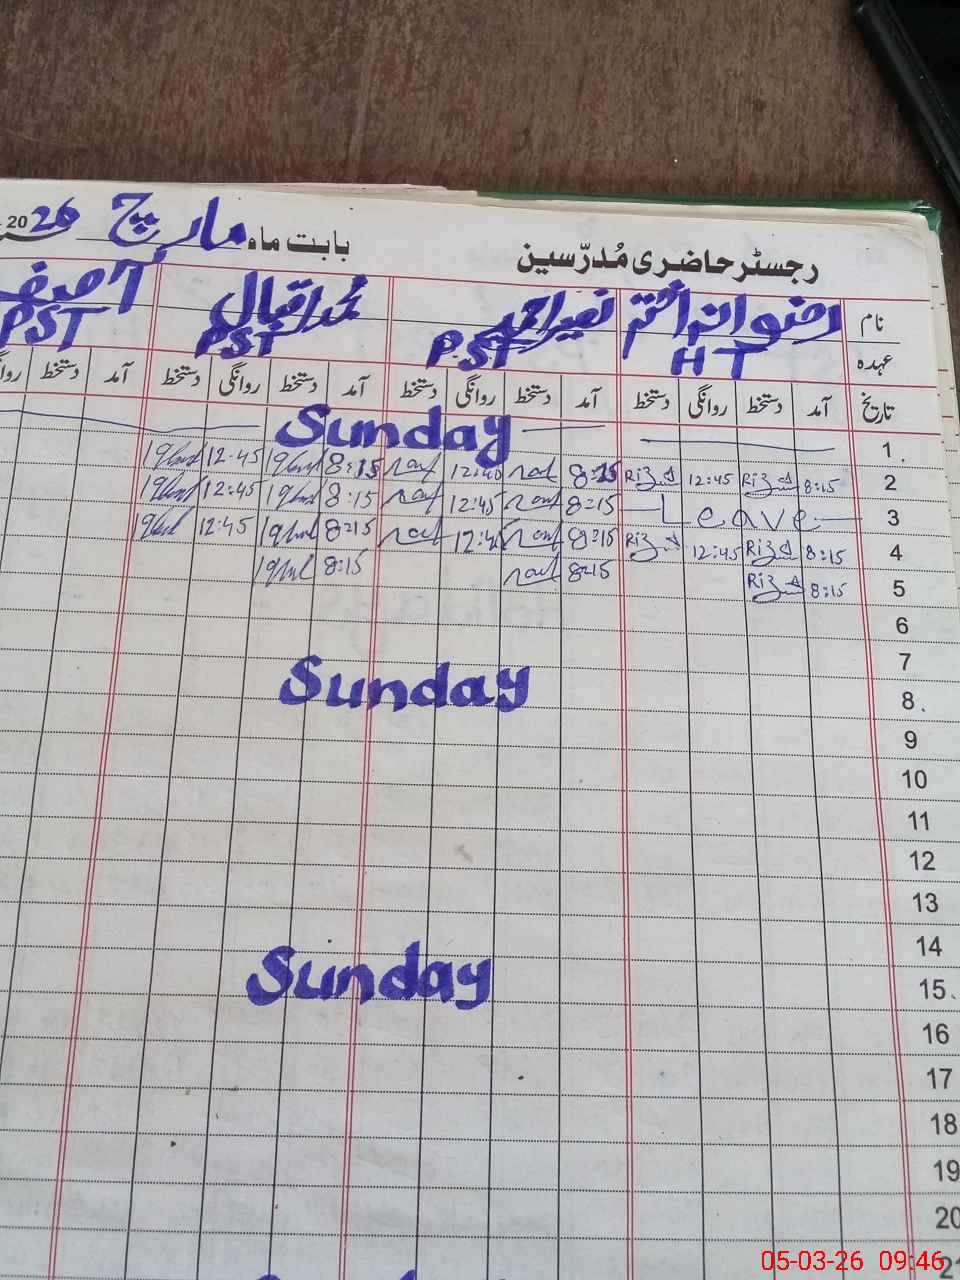 رجسٹر حاضری مُدرّسین بابت ماہ مارچ 2026
نام رضوان اختر محمد اقبال آصف
عہدہ HT PST PST PST
تاریخ آمد دستخط روانگی دستخط آمد دستخط روانگی دستخط آمد دستخط روانگی دستخط آمد دستخط
1. Sunday
2 8:15 Riz 12:45 Riz 8:15 12:45 8:15 Iqbal 12:45 Iqbal
3 Leave 8:15 12:45 8:15 Iqbal 12:45 Iqbal
4 8:15 Riz 12:45 Riz 8:15 12:45 8:15 Iqbal 12:45 Iqbal
5 8:15 Riz 8:15 8:15 Iqbal
6
7
8. Sunday
9
10
11
12
13
14
15. Sunday
16
17
18
19
20
21
05-03-26 09:46